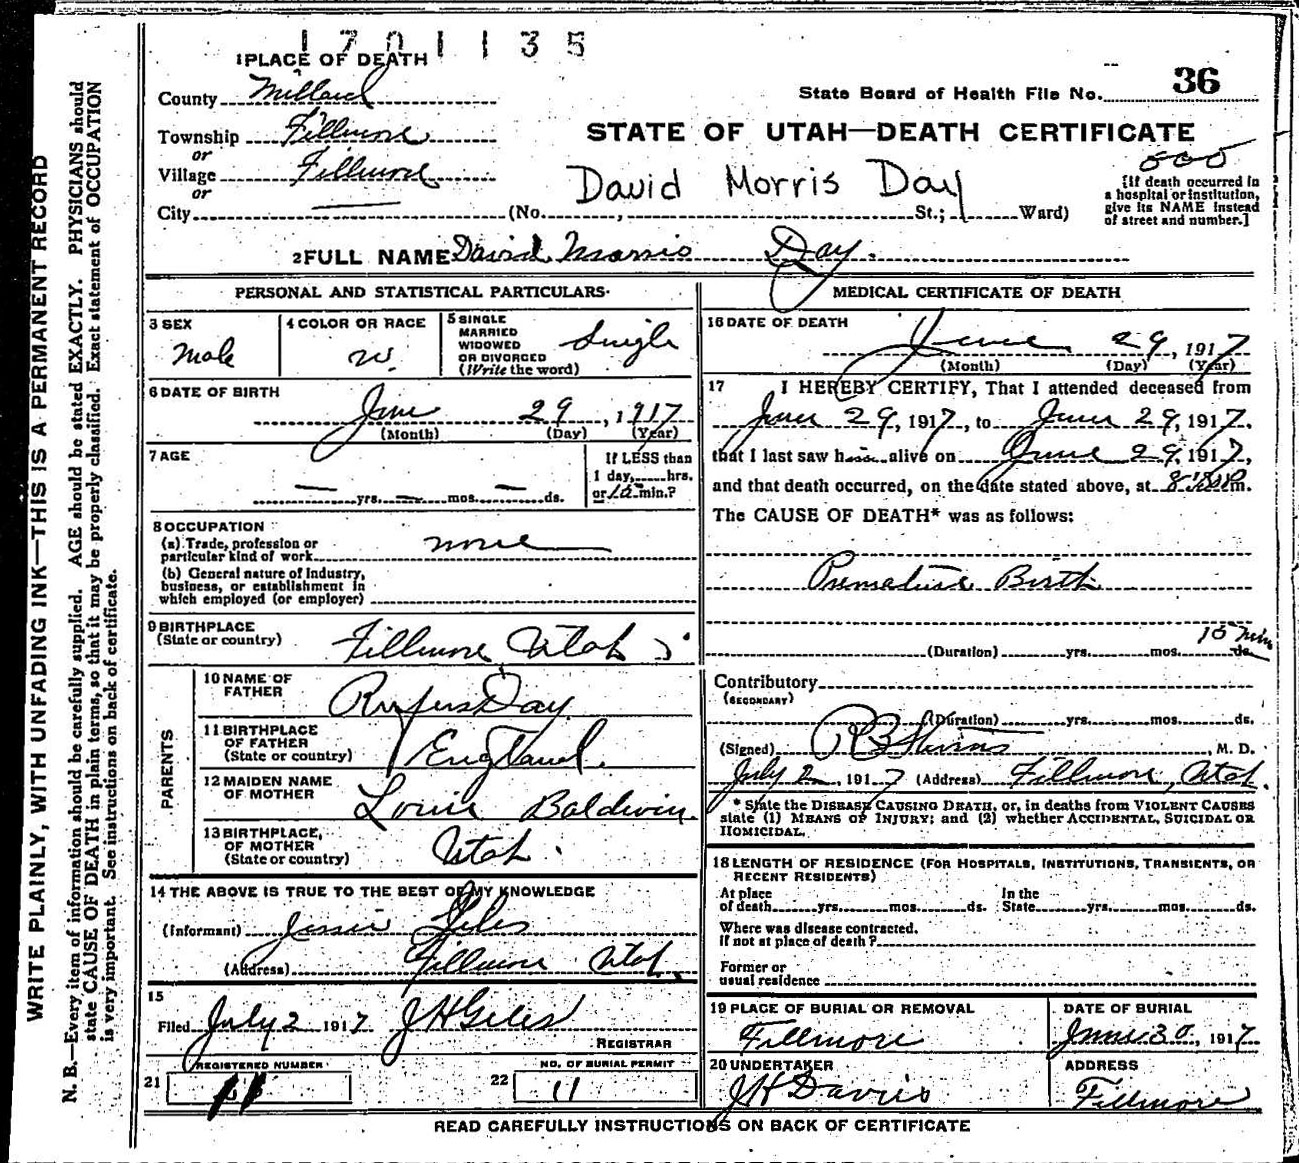 1701135
1 PLACE OF DEATH
County Millard
State Board of Health File No. 36
Township Fillmore
or
Village Fillmore
or
City
STATE OF UTAH—DEATH CERTIFICATE
David Morris Day
(No. , St.; Ward)
[If death occurred in
a hospital or institution,
give its NAME instead
of street and number.]
2 FULL NAME David Morris Day.
PERSONAL AND STATISTICAL PARTICULARS
3 SEX
Male
4 COLOR OR RACE
W.
5 SINGLE
MARRIED
WIDOWED
OR DIVORCED
(Write the word)
Single
6 DATE OF BIRTH
June 29, 1917
(Month) (Day) (Year)
7 AGE
— yrs. — mos. — ds.
If LESS than
1 day, hrs.
or min.?
8 OCCUPATION
(a) Trade, profession or
particular kind of work none
(b) General nature of industry,
business, or establishment in
which employed (or employer)
9 BIRTHPLACE
(State or country) Fillmore Utah
PARENTS
10 NAME OF
FATHER Rufus Day
11 BIRTHPLACE
OF FATHER
(State or country) England.
12 MAIDEN NAME
OF MOTHER Louie Baldwin.
13 BIRTHPLACE,
OF MOTHER
(State or country) Utah.
14 THE ABOVE IS TRUE TO THE BEST OF MY KNOWLEDGE
(Informant) Jessie Giles
(Address) Fillmore Utah.
15
Filed July 2 1917 J H Giles
REGISTRAR
21 REGISTERED NUMBER
22 NO. OF BURIAL PERMIT
11
MEDICAL CERTIFICATE OF DEATH
16 DATE OF DEATH
June 29, 1917
(Month) (Day) (Year)
17 I HEREBY CERTIFY, That I attended deceased from
June 29, 1917, to June 29, 1917.
that I last saw him alive on June 29, 1917,
and that death occurred, on the date stated above, at m.
The CAUSE OF DEATH* was as follows:
Premature Birth
(Duration) yrs. mos. ds.
min
Contributory
(SECONDARY)
(Duration) yrs. mos. ds.
(Signed) , M. D.
July 2, 1917 (Address) Fillmore, Utah.
* State the DISEASE CAUSING DEATH, or, in deaths from VIOLENT CAUSES
state (1) MEANS OF INJURY; and (2) whether ACCIDENTAL, SUICIDAL OR
HOMICIDAL.
18 LENGTH OF RESIDENCE (FOR HOSPITALS, INSTITUTIONS, TRANSIENTS, OR
RECENT RESIDENTS)
At place
of death yrs. mos. ds.
In the
State yrs. mos. ds.
Where was disease contracted.
if not at place of death?
Former or
usual residence
19 PLACE OF BURIAL OR REMOVAL
Fillmore
DATE OF BURIAL
June 30, 1917
20 UNDERTAKER
J H Davis
ADDRESS
Fillmore
READ CAREFULLY INSTRUCTIONS ON BACK OF CERTIFICATE
WRITE PLAINLY, WITH UNFADING INK—THIS IS A PERMANENT RECORD
N. B.—Every item of information should be carefully supplied. AGE should be stated EXACTLY. PHYSICIANS should
state CAUSE OF DEATH in plain terms, so that it may be properly classified. Exact statement of OCCUPATION
is very important. See instructions on back of certificate.